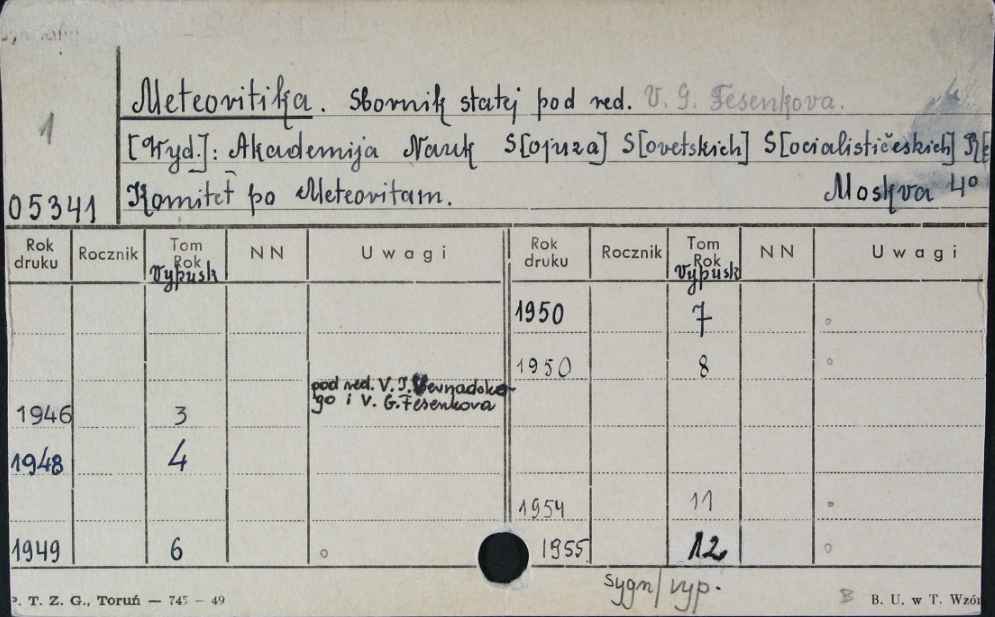 Meteoritika. Sbornik statej pod red. V. G. Fesenkova.
1
[Wyd.]: Akademija Nauk S[ojuza] S[ovetskich] S[ocialističeskich] R[e
05341
Komitet po Meteoritam. Moskva 4°
Rok druku Rocznik Tom Rok Vypusk NN Uwagi Rok druku Rocznik Tom Rok Vypusk NN Uwagi
1950 7 °
1950 8 °
pod red. V. I. Vernadsko-
go i V. G. Fesenkova
1946 3
1948 4
1954 11 °
1949 6 ° 1955 12 °
sygn/ vyp.
P. T. Z. G., Toruń — 745 — 49
B B. U. w T. Wzór